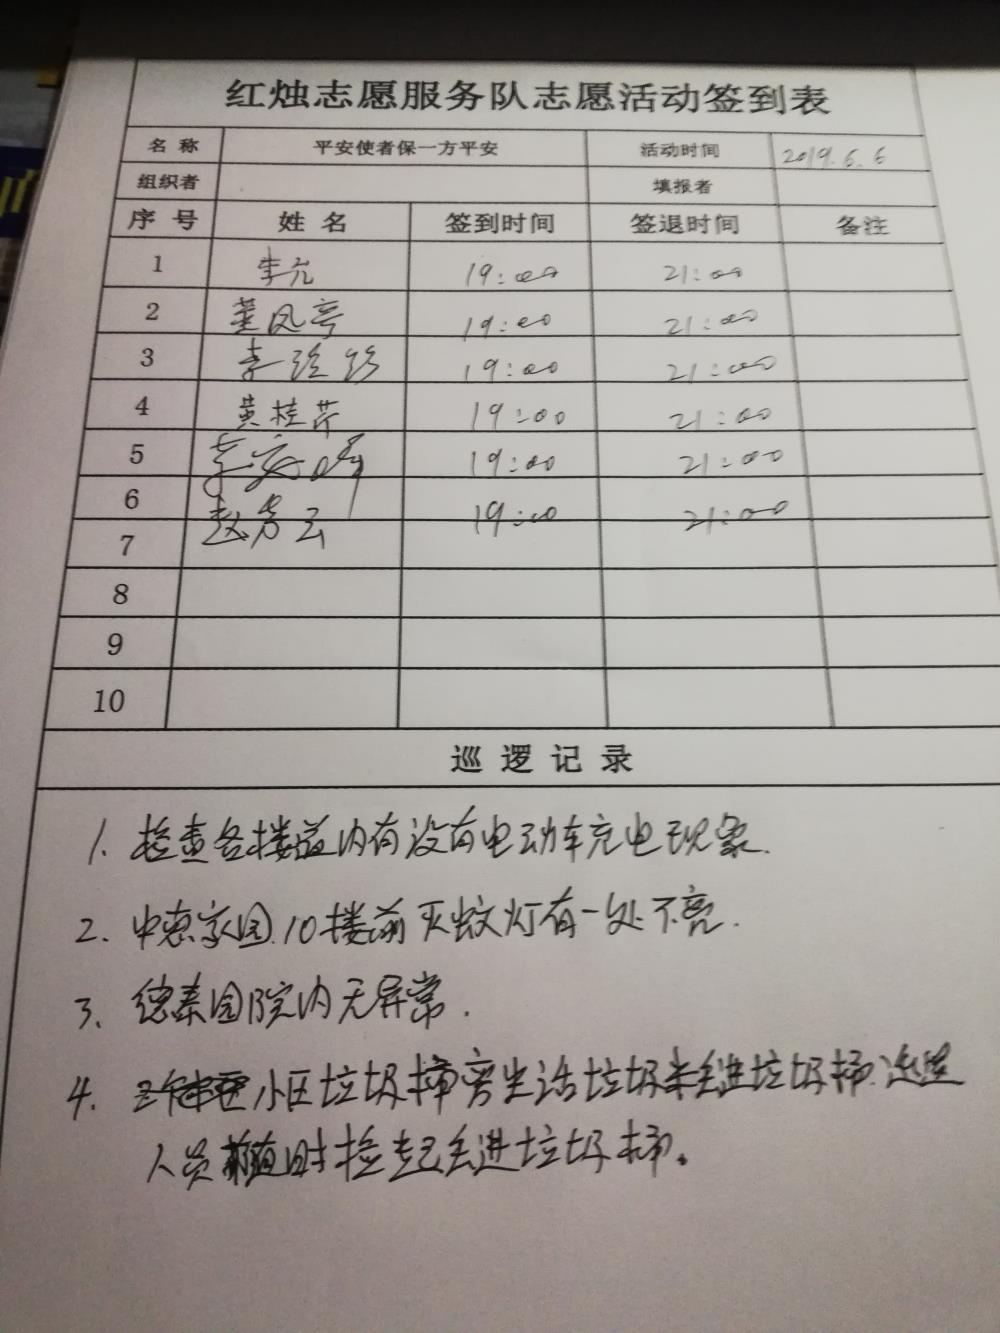 红烛志愿服务队志愿活动签到表
名 称 平安使者保一方平安 活动时间 2019.6.6
组织者 填报者
序 号 姓 名 签到时间 签退时间 备注
1 李允 19:00 21:00
2 董凤亭 19:00 21:00
3 李珍珍 19:00 21:00
4 黄桂芹 19:00 21:00
5 李安峰 19:00 21:00
6 赵秀云 19:00 21:00
7
8
9
10
巡 逻 记 录
1. 检查各楼道内有没有电动车充电现象.
2. 中惠家园.10楼前灭蚊灯有一处不亮.
3、德泰园院内无异常.
4. 小区垃圾桶旁生活垃圾未丢进垃圾桶.巡逻
人员随时检起丢进垃圾桶。